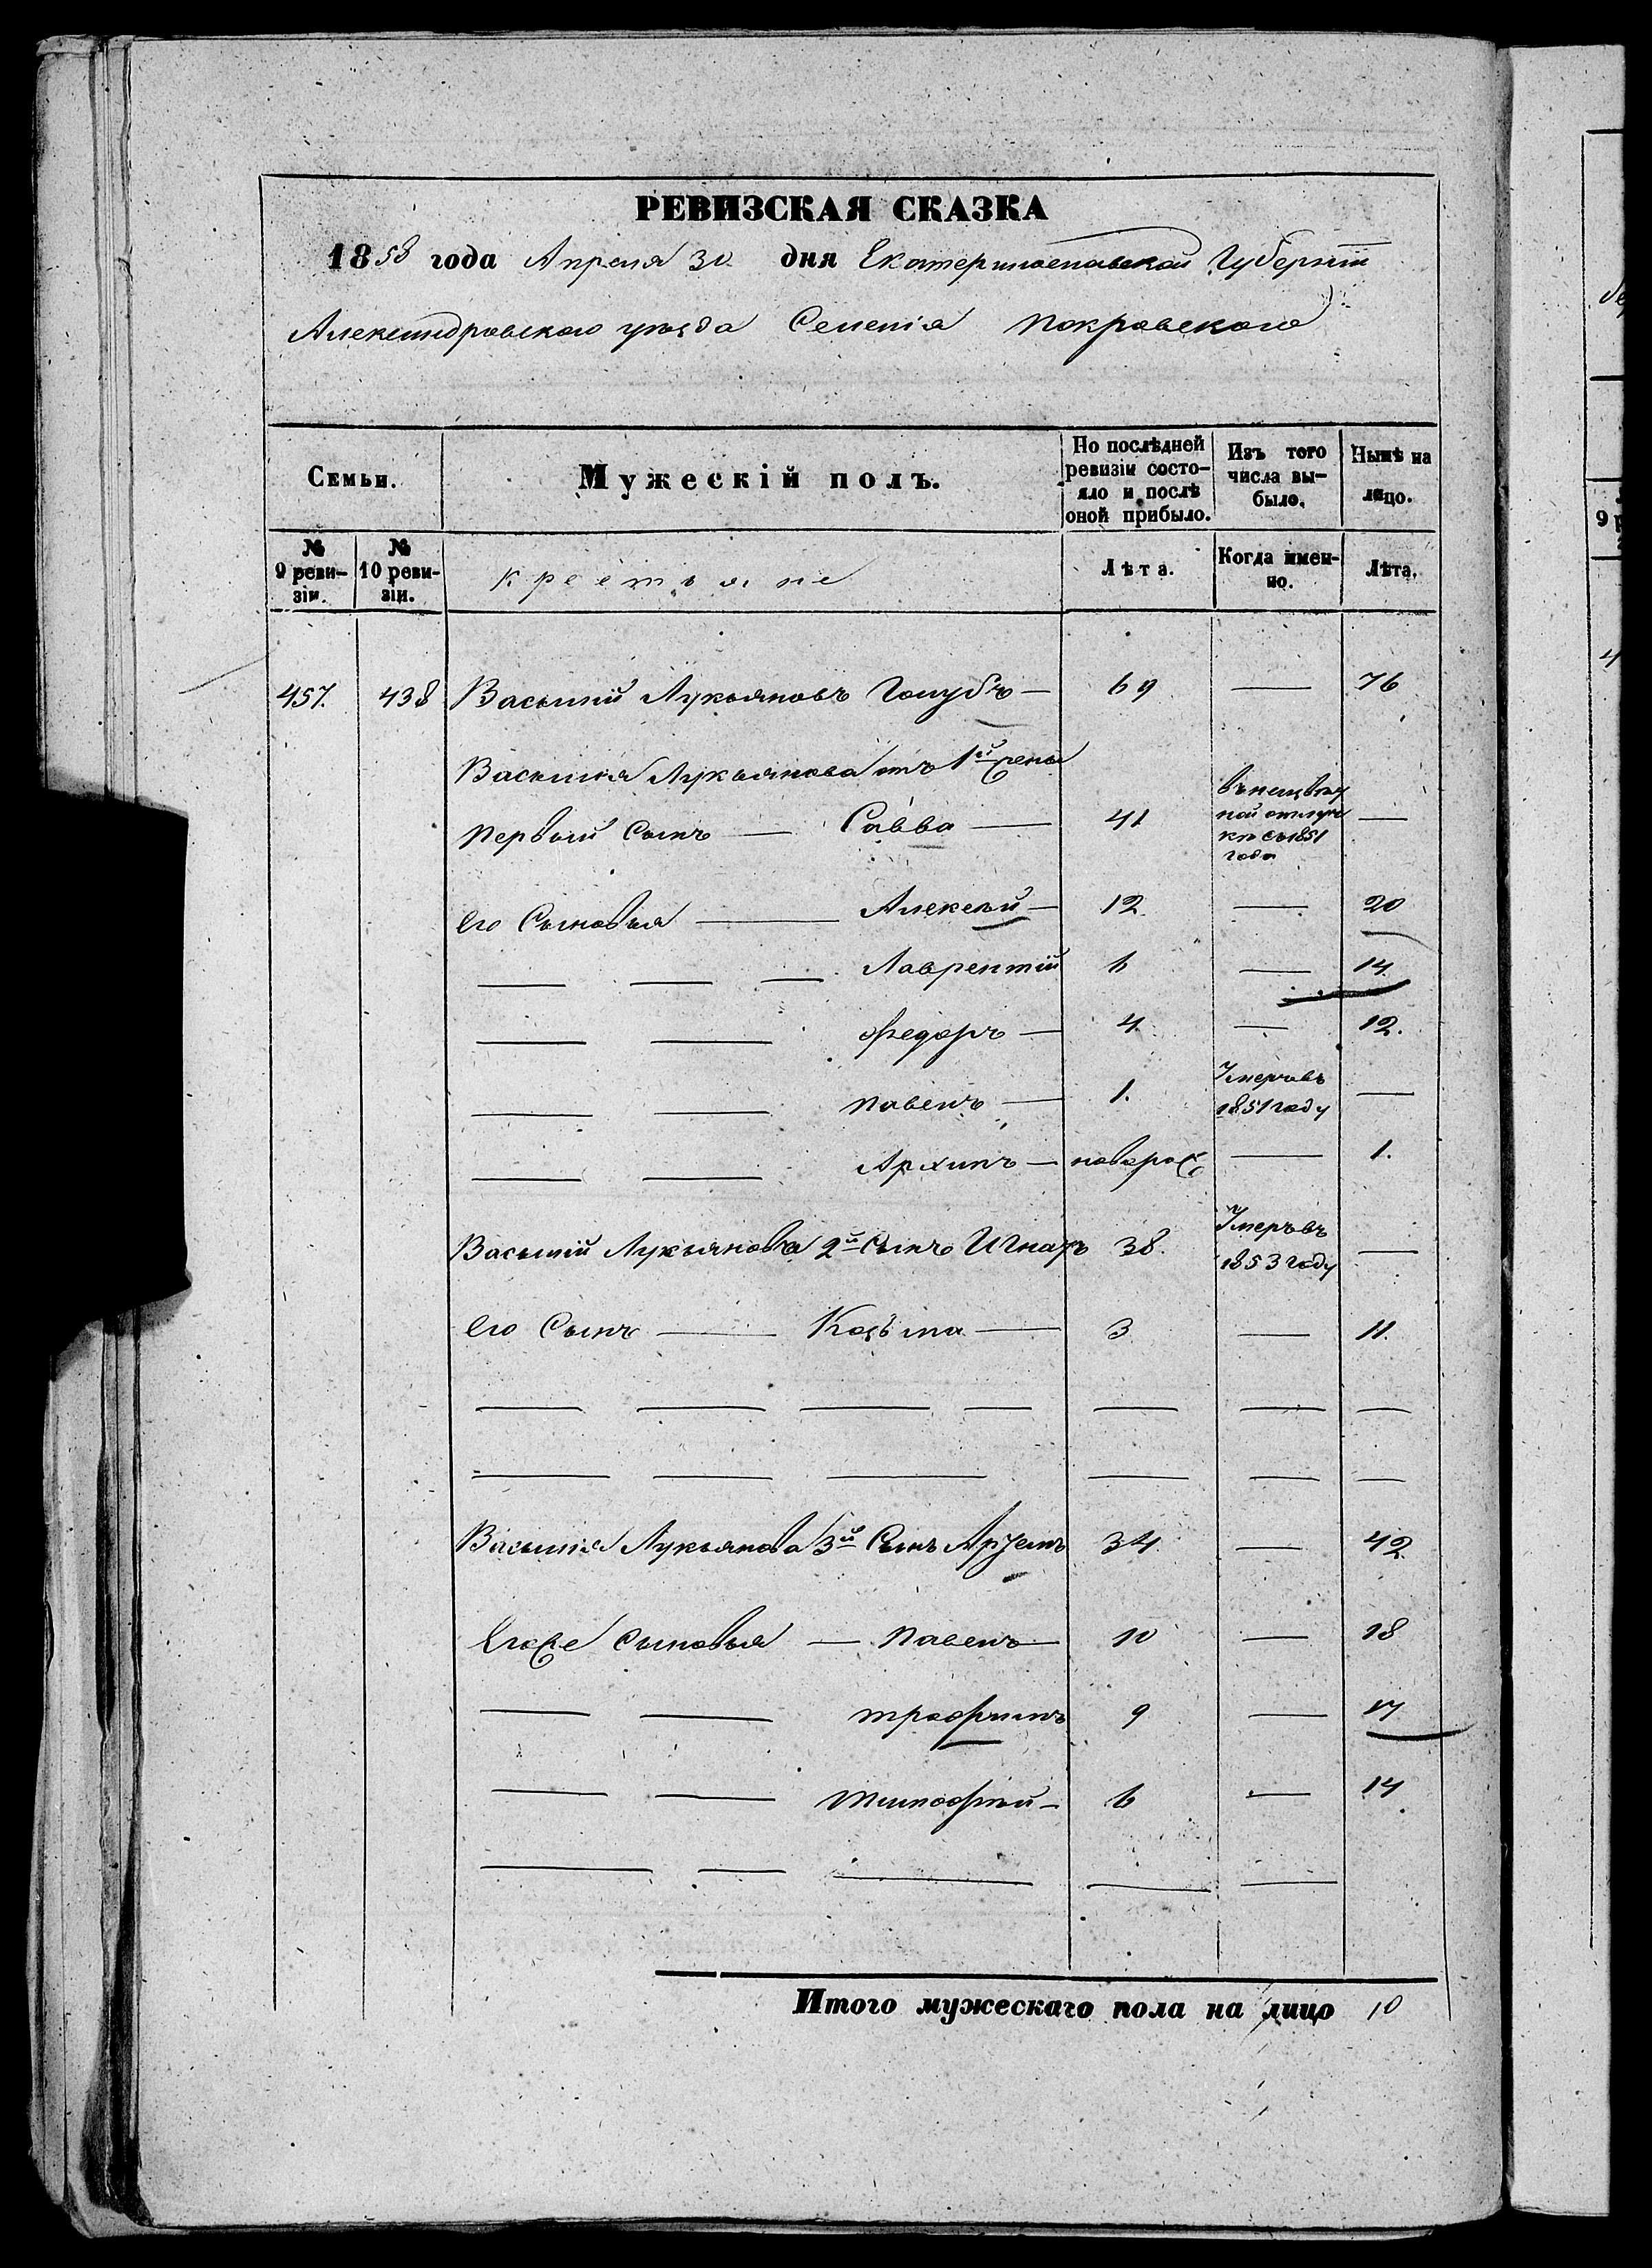 РЕВИЗСКАЯ СКАЗКА
1858 года Апреля 30 дня Екатеринославской Губернiи
Александровского уѣзда Селенiя Покровского
Семьи.
Мужескiй полъ.
По послѣдней ревизiи состо-
яло и послѣ
оной прибыло.
Изъ того
числа вы-
было.
Нынѣ на
лицо.
№
9 реви-
зiи.
№
10 реви-
зiи.
крестьяне
Лѣта.
Когда имен-
но.
Лѣта.
457. 438 Василiй Лукьяновъ Голубъ — 69 — 76
Василiя Лукьянова отъ 1й жены
первый Сынъ — Савва — 41 —
отлуч
кѣ съ 1851
года
его Сыновья — Алексѣй — 12. — 20
— — — Лаврентiй 6 — 14.
— — Федоръ — 4. — 12.
— — павелъ — 1. Умеръ въ
1851 году —
— — Архипъ — новорож — 1.
Василiй Лукьянова 2й Сынъ Игнатъ 38. Умеръ въ
1853 году —
его Сынъ — Козьма — 3 — 11.
— — — — — — —
— — — — — —
Василiя Лукьянова 3й Сынъ Артемъ 34 — 42.
Егоже сыновья — павелъ — 10 — 18
— — трофимъ 9 — 17
— — тимофѣй — 6 — 14
— — — — —
Итого мужескаго пола на лицо 10
9 р
4